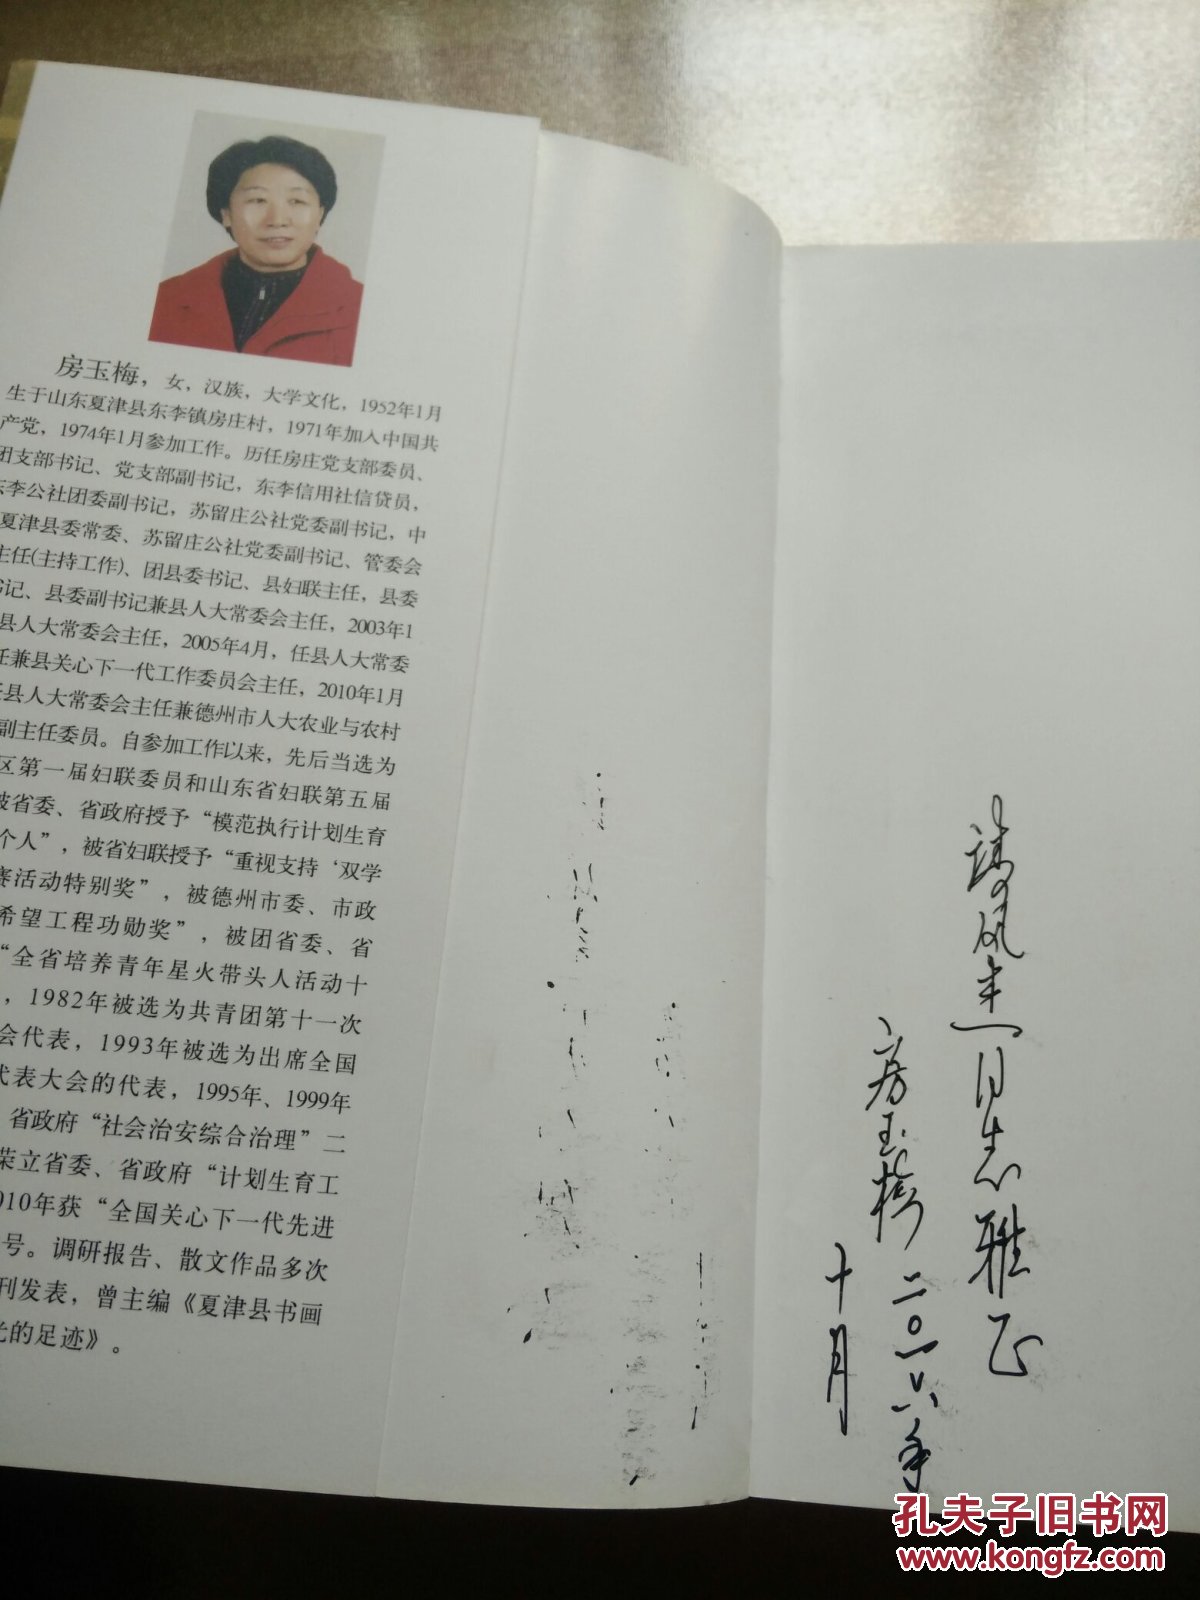 房玉梅，女，汉族，大学文化，1952年1月
生于山东夏津县东李镇房庄村，1971年加入中国共
产党，1974年1月参加工作。历任房庄党支部委员、
团支部书记、党支部副书记，东李信用社信贷员，
东李公社团委副书记，苏留庄公社党委副书记，中
夏津县委常委、苏留庄公社党委副书记、管委会
主任(主持工作)、团县委书记、县妇联主任，县委
书记、县委副书记兼县人大常委会主任，2003年1
县人大常委会主任，2005年4月，任县人大常委
任兼县关心下一代工作委员会主任，2010年1月
任县人大常委会主任兼德州市人大农业与农村
副主任委员。自参加工作以来，先后当选为
区第一届妇联委员和山东省妇联第五届
被省委、省政府授予“模范执行计划生育
个人”，被省妇联授予“重视支持‘双学
赛活动特别奖”，被德州市委、市政
希望工程功勋奖”，被团省委、省
“全省培养青年星火带头人活动十
，1982年被选为共青团第十一次
会代表，1993年被选为出席全国
代表大会的代表，1995年、1999年
省政府“社会治安综合治理”二
荣立省委、省政府“计划生育工
010年获“全国关心下一代先进
号。调研报告、散文作品多次
刊发表，曾主编《夏津县书画
光的足迹》。
请 同志雅正
房玉梅 二〇一六年
十月
孔夫子旧书网
www.kongfz.com